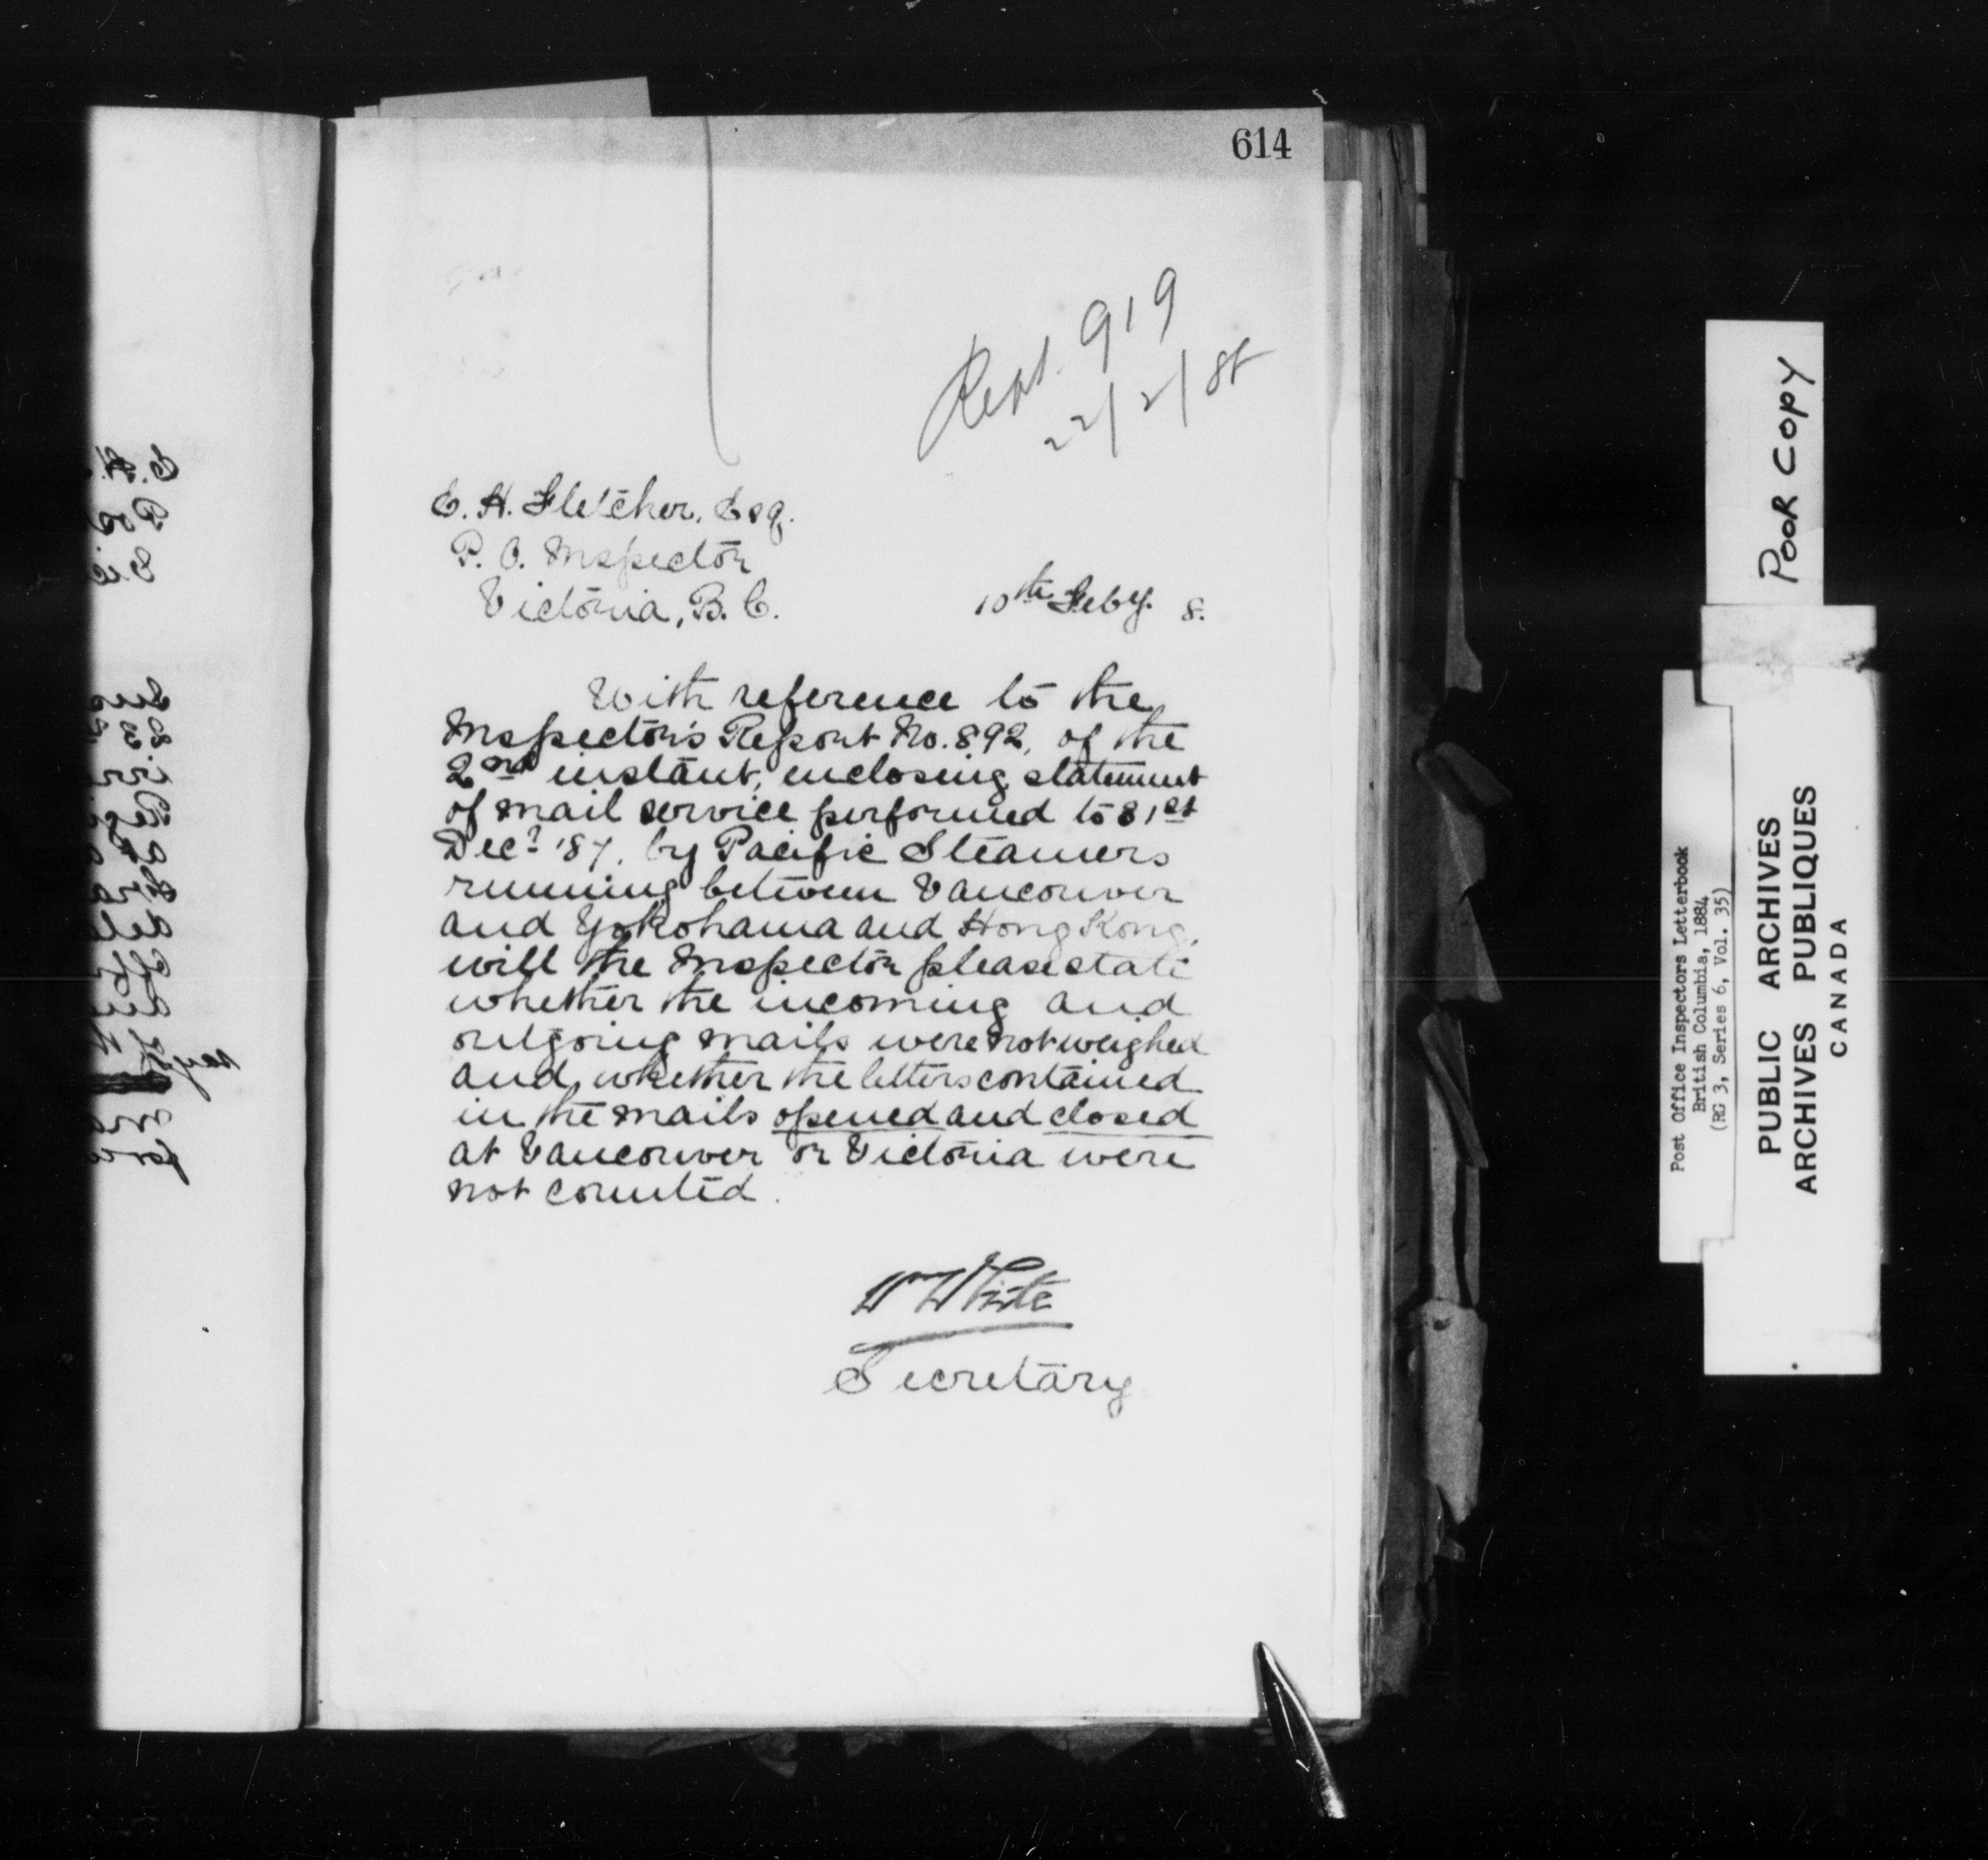 614
Rept. 919
22/2/88
E. H. Fletcher, Esq.
P. O. Inspector
Victoria, B. C.
10th Feby. 8.
With reference to the
Inspector's Report No. 892, of the
2nd instant, enclosing statement
of mail service performed to 31st
Decr '87, by Pacific Steamers
running between Vancouver
and Yokohama and Hong Kong,
will the Inspector please state
whether the incoming and
outgoing mails were not weighed
and whether the letters contained
in the mails opened and closed
at Vancouver or Victoria were
not counted.
W White
Secretary
POOR COPY
Post Office Inspectors Letterbook
British Columbia, 1884
(RG 3, Series 6, Vol. 35)
PUBLIC ARCHIVES
ARCHIVES PUBLIQUES
CANADA